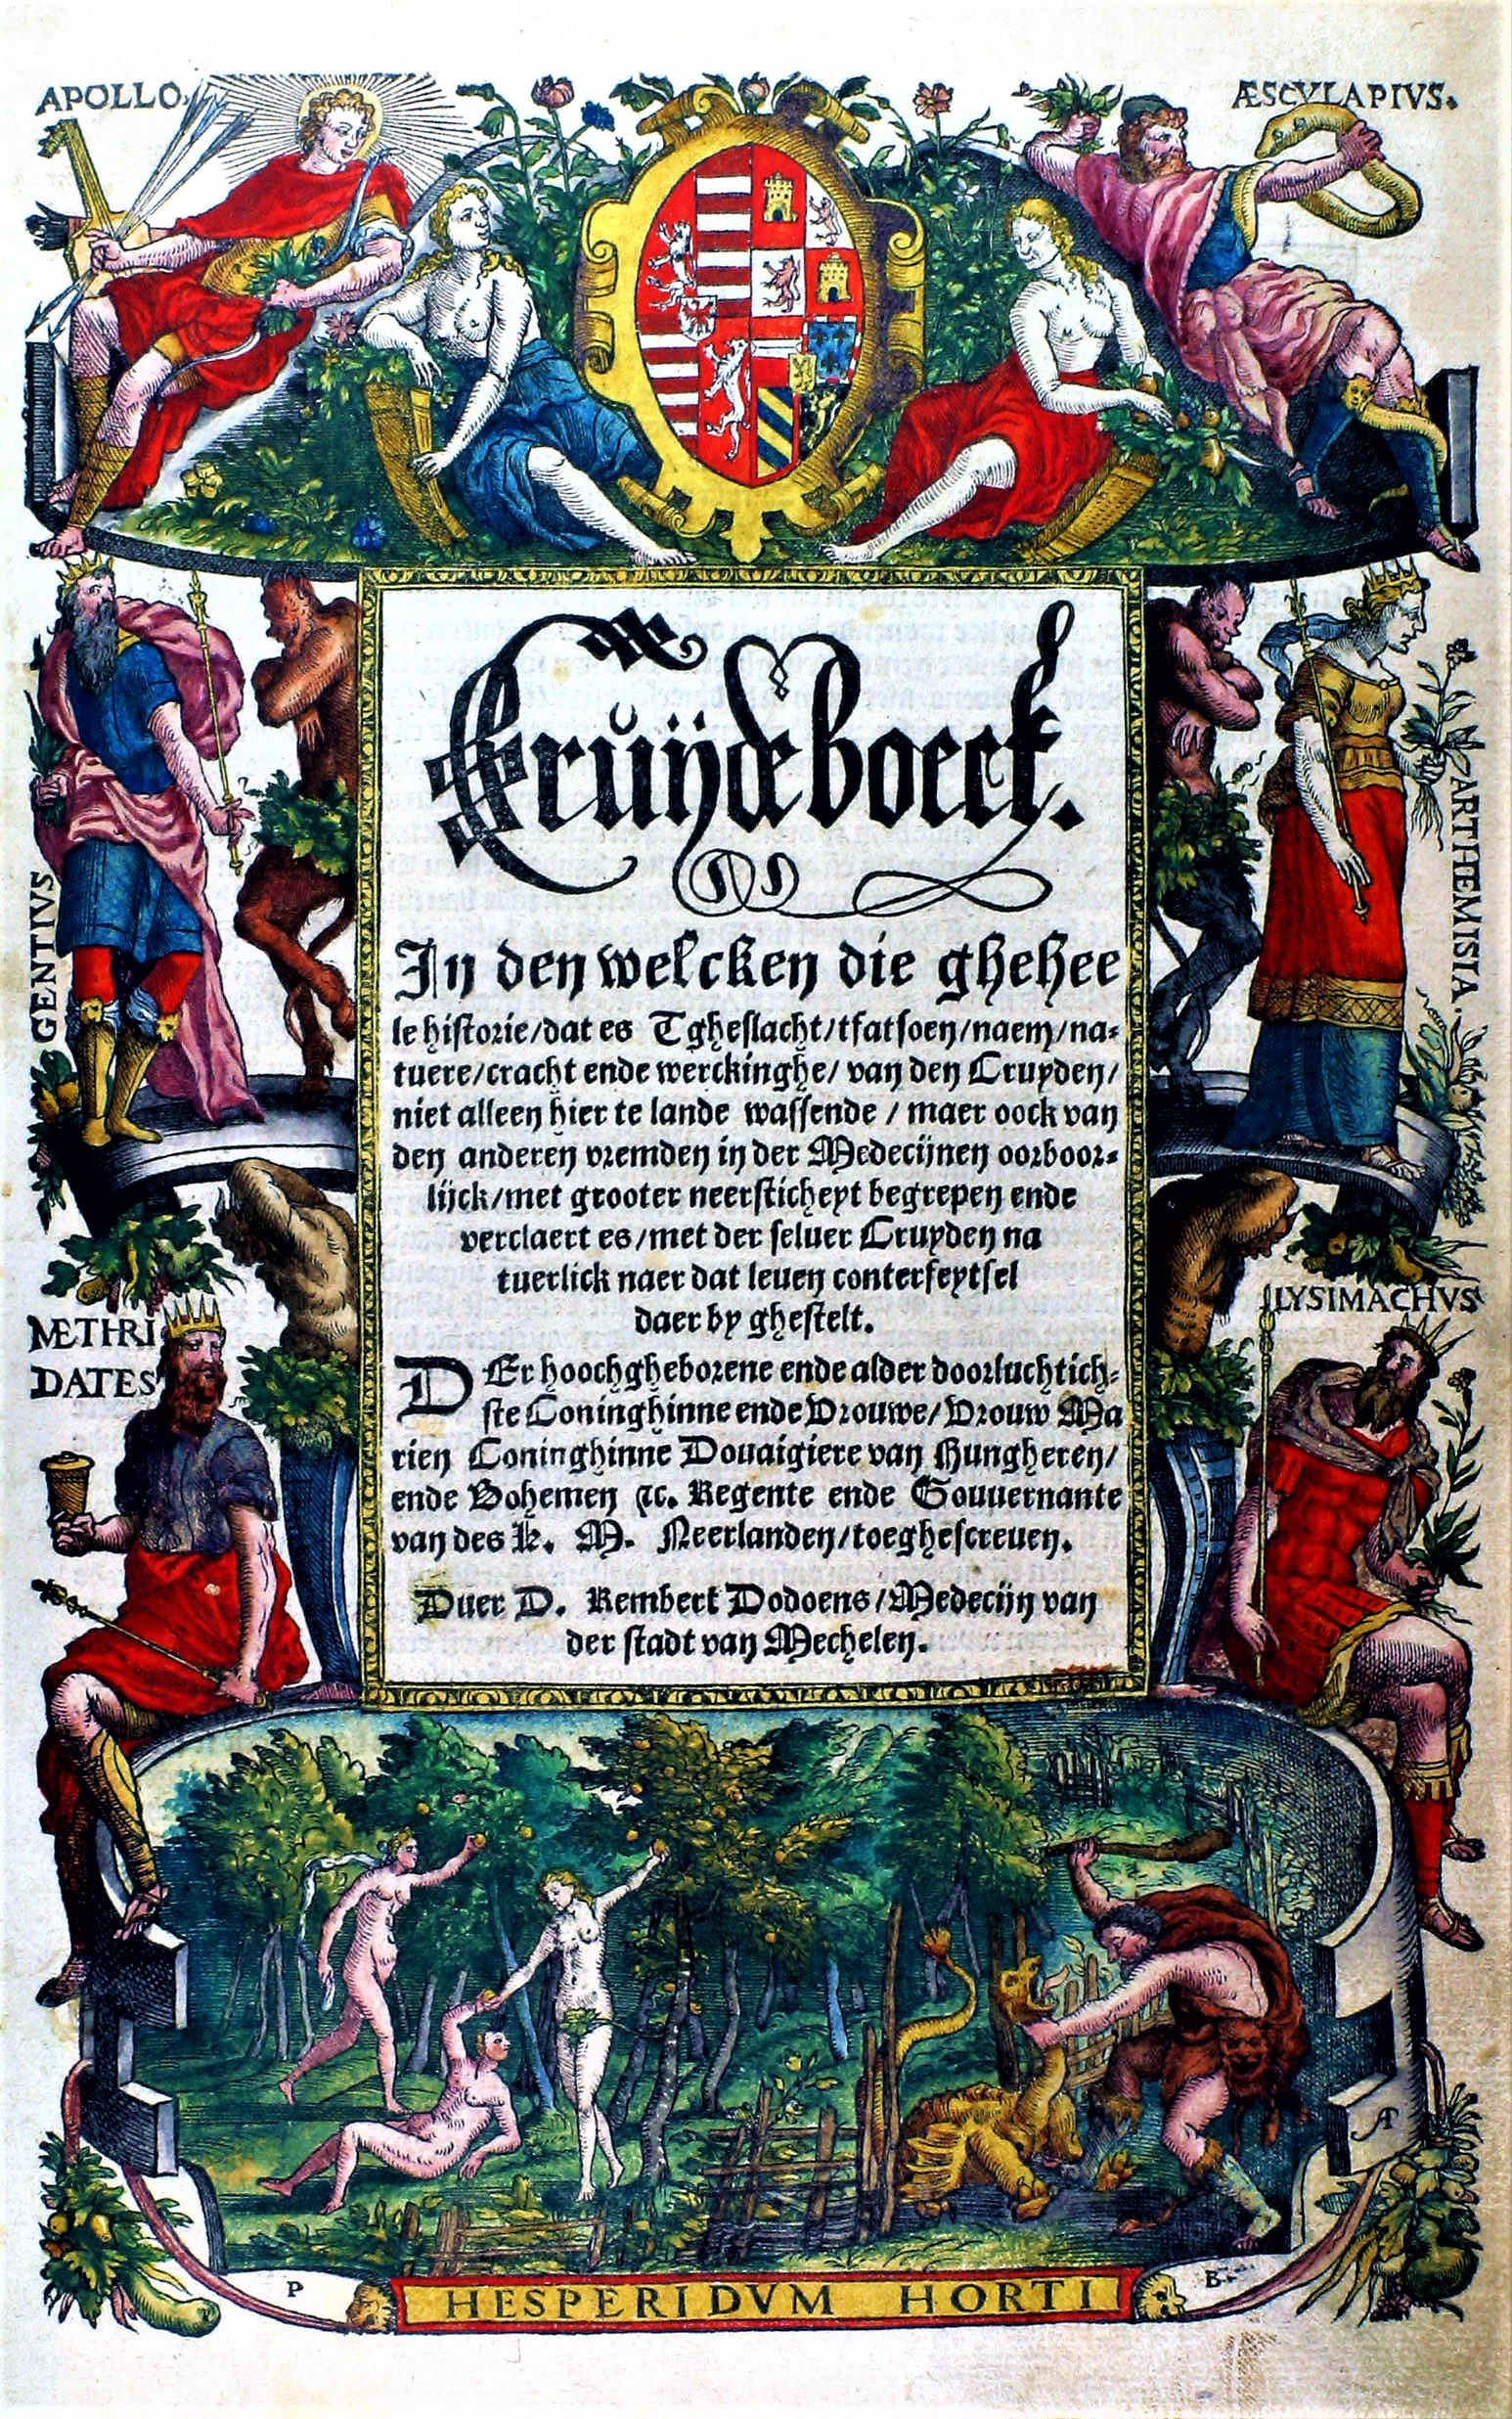 APOLLO.
ÆSCVLAPIVS.
Cruÿdeboeck.
In den welcken die ghehee
le historie/dat es Tgheslacht/tfatsoen/naem/na-
tuere/cracht ende werckinghe/ van den Cruyden/
niet alleen hier te lande wassende / maer oock van
den anderen vremden in der Medecijnen oorboor-
lijck/met grooter neersticheyt begrepen ende
verclaert es/met der seluer Cruyden na
tuerlick naer dat leuen conterfeytsel
daer by ghestelt.
DEr hoochgheborene ende alder doorluchtich-
ste Coninghinne ende Vrouwe/Vrouw Ma
rien Coninghinne Douaigiere van Hungheren/
ende Bohemen ꝛc. Regente ende Gouuernante
van des K. M. Neerlanden/toeghescreuen.
Duer D. Rembert Dodoens/Medecijn van
der stadt van Mechelen.
GENTIVS
ARTHEMISIA.
METHRI
DATES
LYSIMACHVS
P
B
HESPERIDVM HORTI